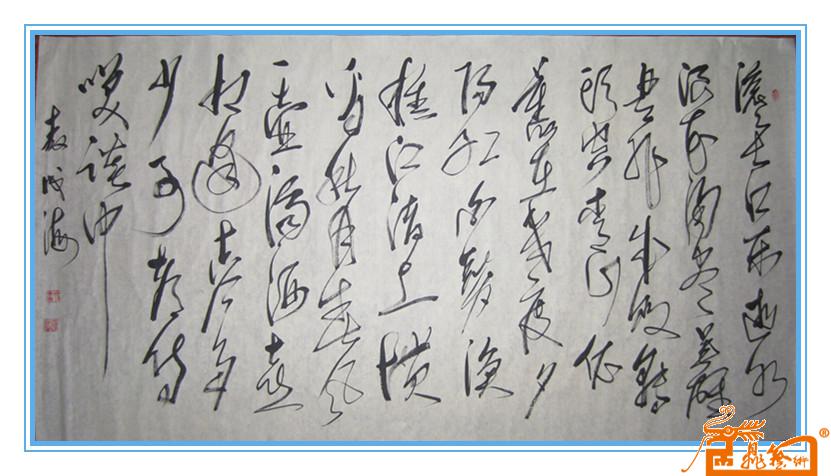 滚滚长江东逝水
浪花淘尽英雄
是非成败转
头空青山依
旧在几度夕
阳红白发渔
樵江渚上惯
看秋月春风
一壶浊酒喜
相逢古今多
少事都付
笑谈中